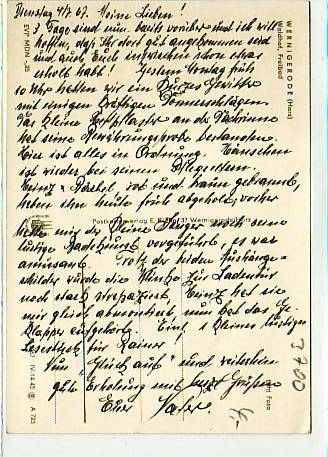 Dienstag 4/7. 67. Meine Lieben!
3 Tage sind nun bereits vorüber und ich will
hoffen, daß Ihr dort gut angekommen seid
und auch Euch inzwischen schon etwas
erholt habt! Gestern Montag früh
10 Uhr hatten wir ein kurzes Gewitter
mit einigen kräftigen Donnerschlägen.
Das kleine an der Dachrinne
hat seine Bewährungsprobe bestanden.
Hier ist alles in Ordnung. Hänschen
ist wieder bei seinen Pflegeeltern.
Heinz + Bärbel, rot und braun gebrannt,
haben ihn heute früh abgeholt, vorher
hatte mir der kleine noch seine
lustige Radelkunst vorgeführt, es war
amüsant. Trotz der beiden Aushänge-
schilder würde die Klinke zur Ladentür
noch stark strapaziert. Heinz hat sie
mir gleich abmontiert, nun hat das Ge-
klapper aufgehört. 1 kleines lustiges
für Rainer
Nun "Glück auf" und weiterhin
gute Erholung mit Grüßen
Euer Vater.
WERNIGERODE (Harz)
Waldhof, Freibad
EVP MDN -,20
Postkartenverlag E. 37 Wernigerode
IV-14-45 A 723
Foto
3700